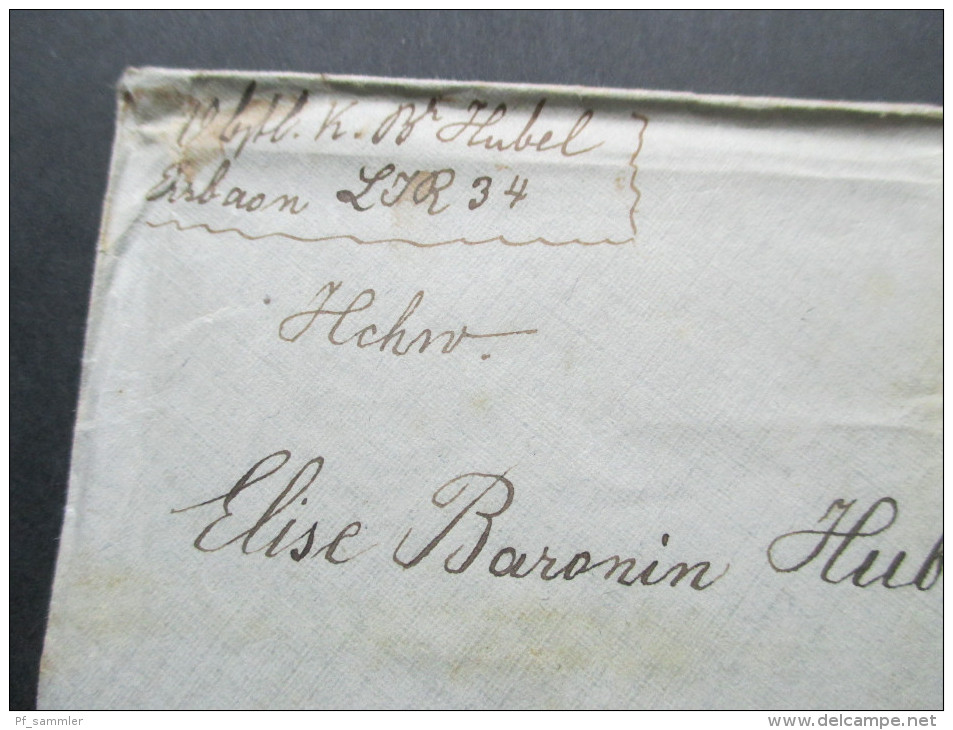 K. Br Hubel
Ersbaon LIR 34
Hchw.
Elise Baronin Hub
Pf_sammler
www.delcampe.net